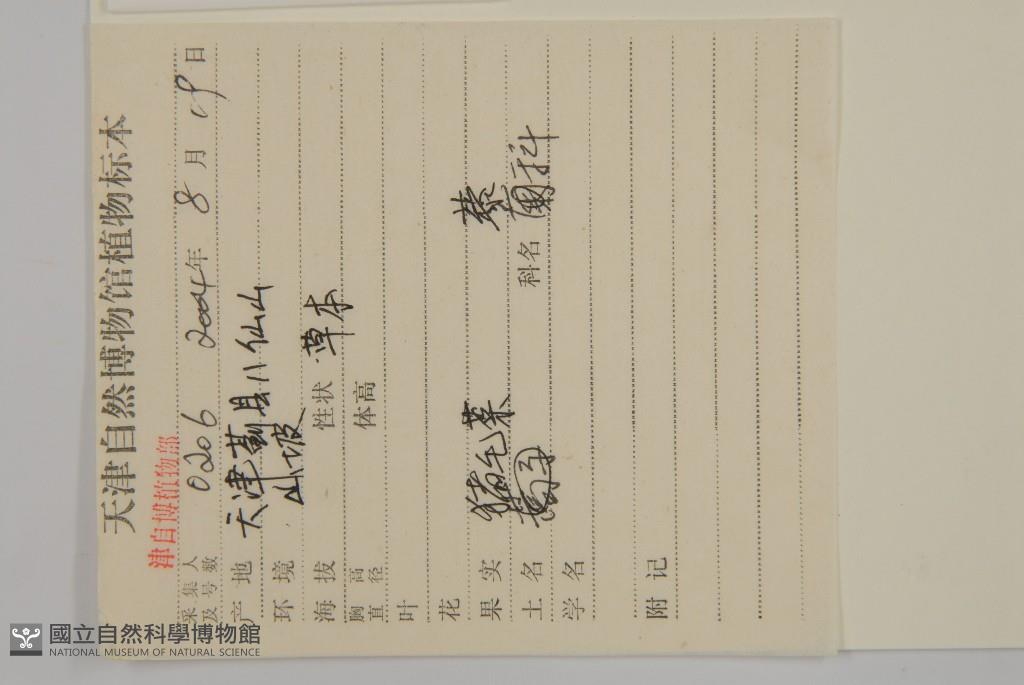 天津自然博物馆植物标本
津自博植物部
采集人及号数 0206 2004年 8月 19日
产地 天津蓟县八仙山
环境 山坡
海拔 性状 草本
胸高直径 体高
叶
花
果实 猪毛菜 藜
土名 科名 科
学名
附记
國立自然科學博物館
NATIONAL MUSEUM OF NATURAL SCIENCE